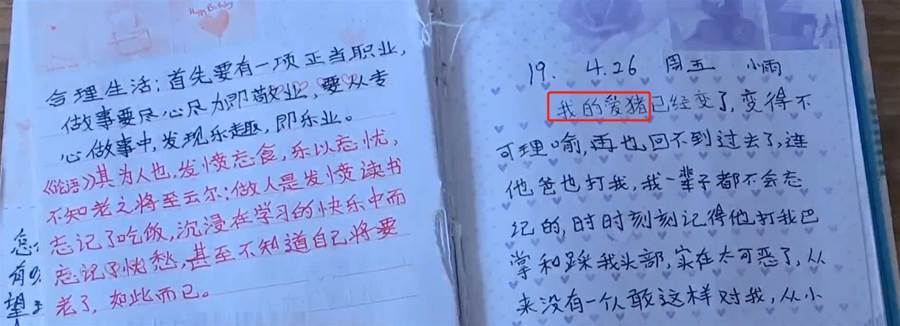 Happy Birthday
合理生活：首先要有一项正当职业，
做事要尽心尽力即敬业，要从专
心做事中，发现乐趣，即乐业。
《论语》其为人也，发愤忘食，乐以忘忧，
不知老之将至云尔：做人是发愤读书
忘记了吃饭，沉浸在学习的快乐中而
忘记了忧愁，甚至不知道自己将要
老了，如此而已。
有
望
19. 4.26 周五 小雨
我的爱猪已经变了，变得不
可理喻，再也回不到过去了，连
他爸也打我，我一辈子都不会忘
记的，时时刻刻记得他打我巴
掌和踩我头部，实在太可恶了，从
来没有一个人敢这样对我，从小